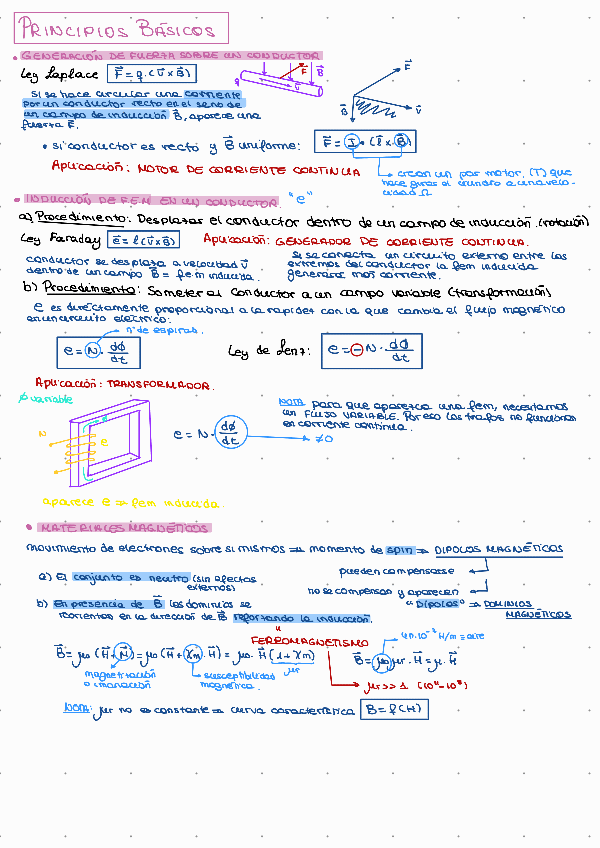 PRINCIPIOS BÁSICOS
• GENERACIÓN DE FUERZA SOBRE UN CONDUCTOR
Ley Laplace F⃗ = q·(v⃗ x B⃗)
F⃗ B⃗ q v⃗
F⃗ B⃗ v⃗
si se hace circular una corriente
por un conductor recto en el seno de
un campo de inducción B⃗, aparece una
fuerza F⃗.
• si conductor es recto y B⃗ uniforme: F⃗ = I·(l⃗ x B⃗)
Aplicación: MOTOR DE CORRIENTE CONTINUA
crean un par motor (T) que
hace girar el cilindro a una velo-
cidad Ω
• INDUCCIÓN DE F.E.M EN UN CONDUCTOR "e"
a) Procedimiento: Desplazar el conductor dentro de un campo de inducción (rotación)
Ley Faraday e = l(v⃗ x B⃗) Aplicación: GENERADOR DE CORRIENTE CONTINUA.
conductor se desplaza a velocidad v⃗
dentro de un campo B⃗ = f.e.m inducida
si se conecta un circuito externo entre los
extremos del conductor la fem inducida
generará más corriente.
b) Procedimiento: Someter al conductor a un campo variable (transformación)
e es directamente proporcional a la rapidez con la que cambia el flujo magnético
en un circuito eléctrico:
nº de espiras.
e = N· dϕ/dt Ley de Lenz: e = -N· dϕ/dt
Aplicación: TRANSFORMADOR.
ϕ variable
N e
e = N· dϕ/dt ≠0
NOTA para que aparezca una fem, necesitamos
un FLUJO VARIABLE. Por eso los trafos no funcionan
en corriente continua.
aparece e ⇒ fem inducida
• MATERIALES MAGNÉTICOS
movimiento de electrones sobre si mismos ⇒ momento de spin ⇒ DIPOLOS MAGNÉTICOS
pueden compensarse
a) El conjunto es neutro (sin efectos
externos)
no se compensan y aparecen
"Dipolos" ⇒ DOMINIOS
MAGNÉTICOS
b) En presencia de B⃗ los dominios se
reorientan en la dirección de B⃗ reforzando la inducción.
"
FERROMAGNETISMO
B⃗ = μo (H⃗ + M⃗) = μo (H⃗ + χm·H⃗) = μo·H⃗ (1 + χm)
μr
magnetización
o imanación
susceptibilidad
magnética.
4π·10⁻⁷ H/m = aire
B⃗ = μo μr·H⃗ = μ·H⃗
μr >> 1
NOTA: μr no es constante ⇒ curva característica B = f(H)